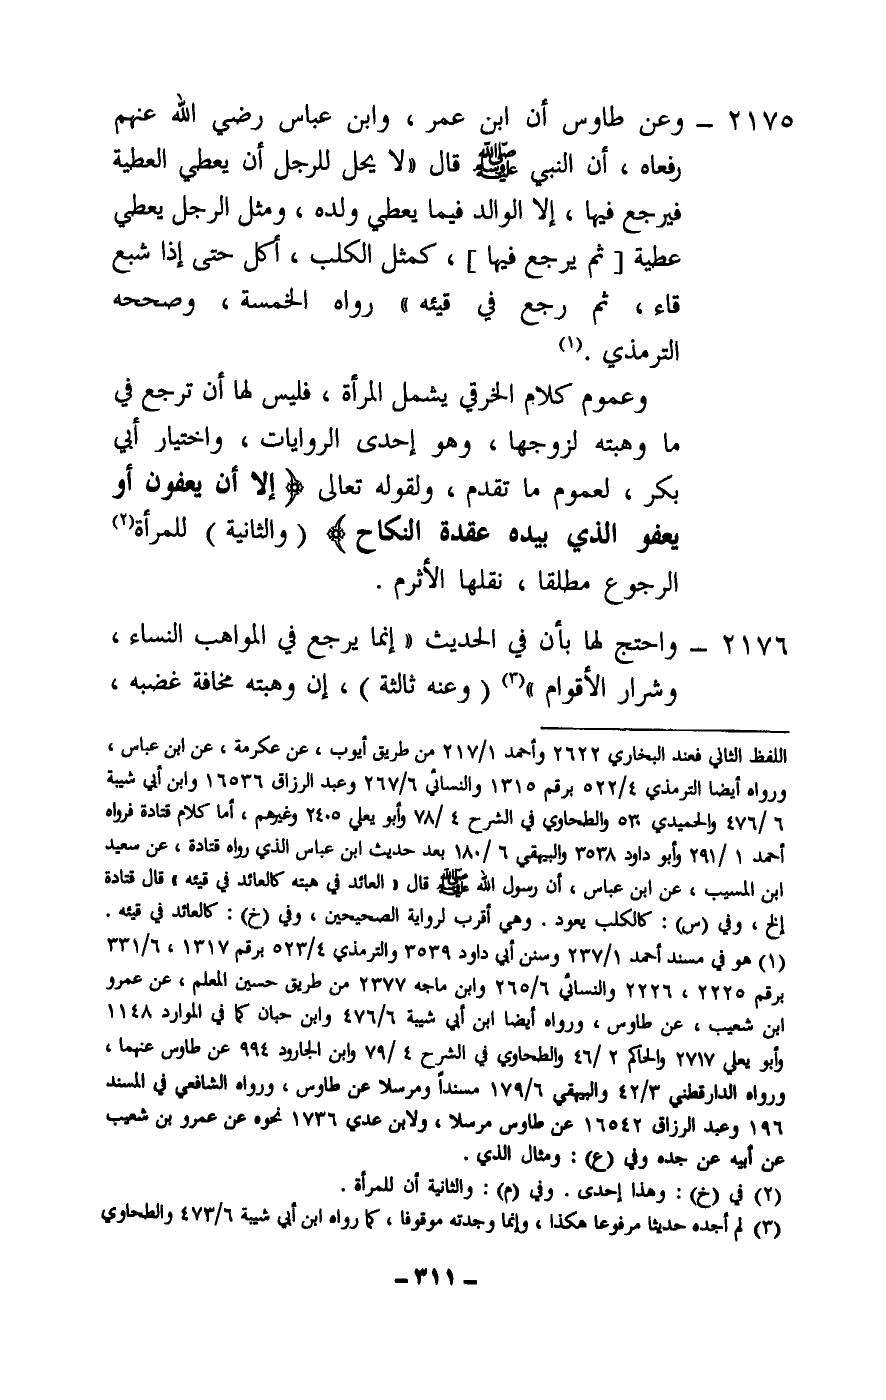 ٢١٧٥ ــ وعن طاوس أن ابن عمر ، وابن عباس رضي الله عنهم
رفعاه ، أن النبي ﷺ قال «لا يحل للرجل أن يعطي العطية
فيرجع فيها ، إلا الوالد فيما يعطي ولده ، ومثل الرجل يعطي
عطية [ ثم يرجع فيها ] ، كمثل الكلب ، أكل حتى إذا شبع
قاء ، ثم رجع في قيئه » رواه الخمسة ، وصححه
الترمذي .(١)
وعموم كلام الخرقي يشمل المرأة ، فليس لها أن ترجع في
ما وهبته لزوجها ، وهو إحدى الروايات ، واختيار أبي
بكر ، لعموم ما تقدم ، ولقوله تعالى ﴿ إلا أن يعفون أو
يعفو الذي بيده عقدة النكاح ﴾ ( والثانية ) للمرأة(٢)
الرجوع مطلقا ، نقلها الأثرم .
٢١٧٦ ــ واحتج لها بأن في الحديث « إنما يرجع في المواهب النساء ،
وشرار الأقوام »(٣) ( وعنه ثالثة ) ، إن وهبته مخافة غضبه ،
اللفظ الثاني فعند البخاري ٢٦٢٢ وأحمد ٢١٧/١ من طريق أيوب ، عن عكرمة ، عن ابن عباس ،
ورواه أيضا الترمذي ٥٢٢/٤ برقم ١٣١٥ والنسائي ٢٦٧/٦ وعبد الرزاق ١٦٥٣٦ وابن أبي شيبة
٦ /٤٧٦ والحميدي ٥٣٠ والطحاوي في الشرح ٤ /٧٨ وأبو يعلي ٢٤٠٥ وغيرهم ، أما كلام قتادة فرواه
أحمد ١ /٢٩١ وأبو داود ٣٥٣٨ والبيهقي ٦ /١٨٠ بعد حديث ابن عباس الذي رواه قتادة ، عن سعيد
ابن المسيب ، عن ابن عباس ، أن رسول الله ﷺ قال « العائد في هبته كالعائد في قيئه » قال قتادة
إلخ ، وفي (س) : كالكلب يعود . وهي أقرب لرواية الصحيحين ، وفي (خ) : كالعائد في قيئه .
(١) هو في مسند أحمد ٢٣٧/١ وسنن أبي داود ٣٥٣٩ والترمذي ٥٢٣/٤ برقم ١٣١٧ ، ٣٣١/٦
برقم ٢٢٢٥ ، ٢٢٢٦ والنسائي ٢٦٥/٦ وابن ماجه ٢٣٧٧ من طريق حسين المعلم ، عن عمرو
ابن شعيب ، عن طاوس ، ورواه أيضا ابن أبي شيبة ٤٧٦/٦ وابن حبان كما في الموارد ١١٤٨
وأبو يعلي ٢٧١٧ والحاكم ٢ /٤٦ والطحاوي في الشرح ٤ /٧٩ وابن الجارود ٩٩٤ عن طاوس عنهما ،
ورواه الدارقطني ٤٢/٣ والبيهقي ١٧٩/٦ مسنداً ومرسلا عن طاوس ، ورواه الشافعي في المسند
١٩٦ وعبد الرزاق ١٦٥٤٢ عن طاوس مرسلا ، ولابن عدي ١٧٣٦ نحوه عن عمرو بن شعيب
عن أبيه عن جده وفي (ع) : ومثال الذي .
(٢) في (خ) : وهذا إحدى . وفي (م) : والثانية أن للمرأة .
(٣) لم أجده حديثا مرفوعا هكذا ، وإنما وجدته موقوفا ، كما رواه ابن أبي شيبة ٤٧٣/٦ والطحاوي
ــ ٣١١ ــ